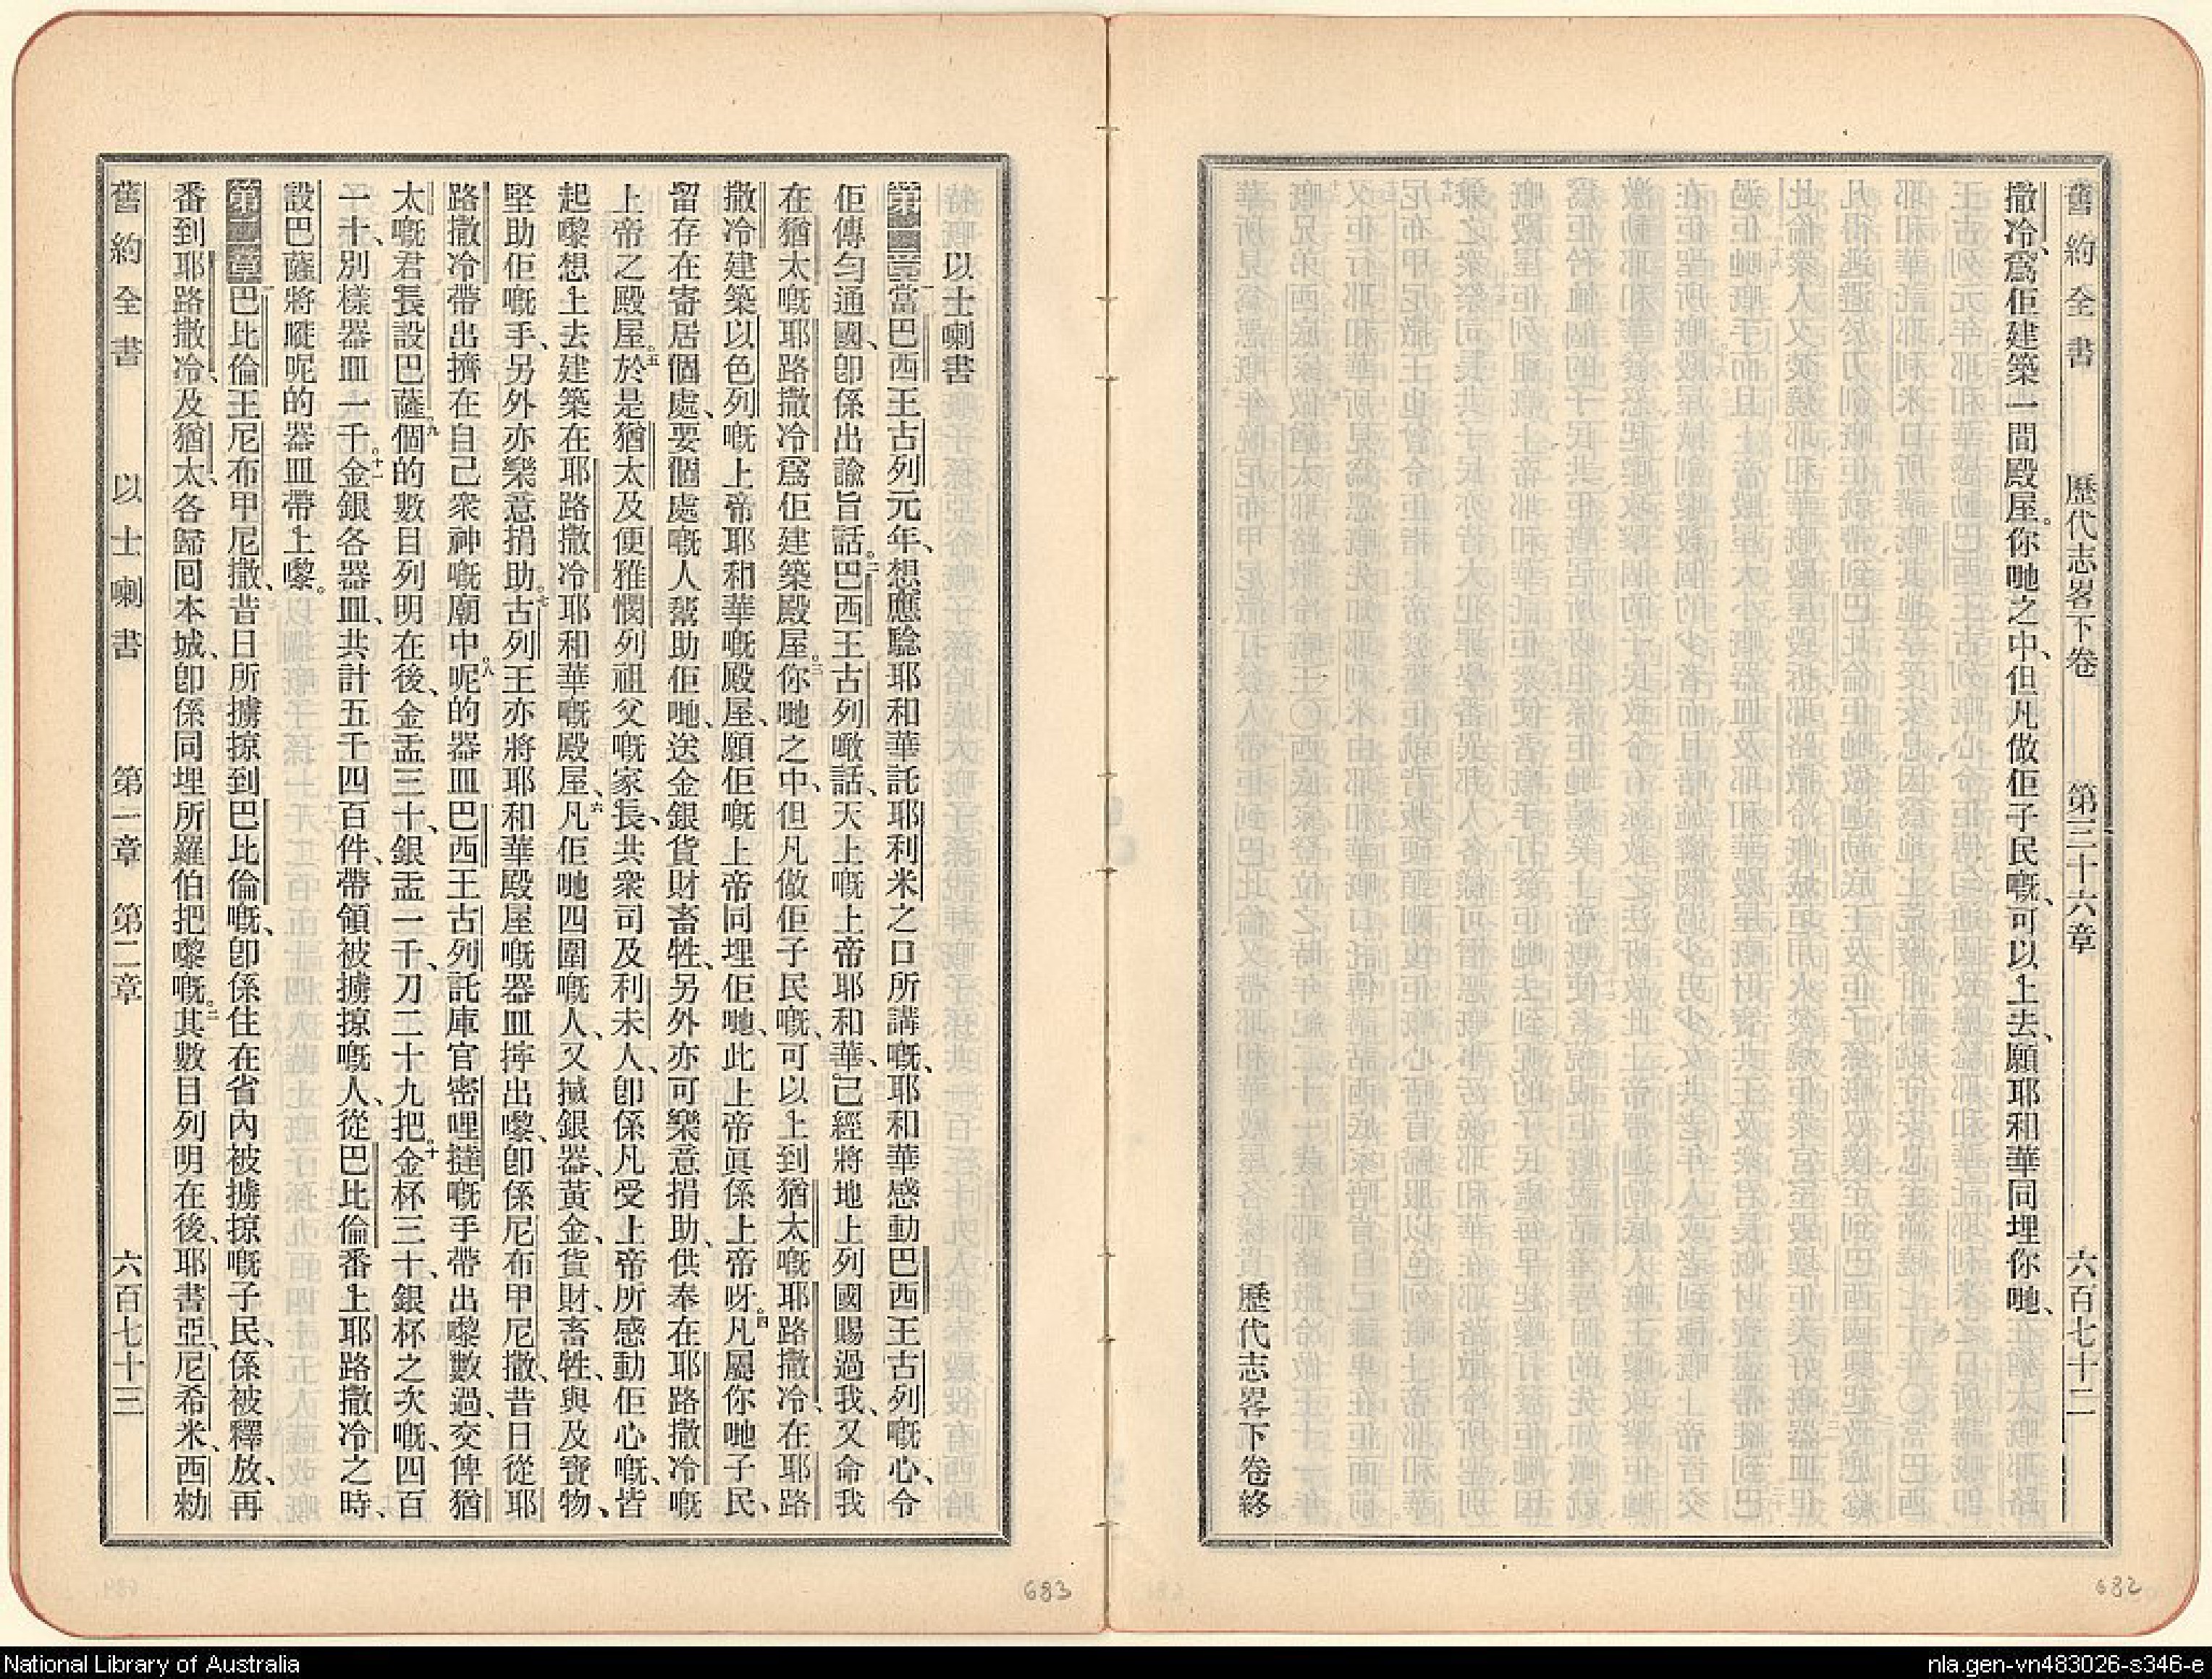 舊約全書　歷代志畧下卷　第三十六章　六百七十二
撒冷、爲佢建築一間殿屋。你哋之中、但凡做佢子民嘅、可以上去、願耶和華同埋你哋、
歷代志畧下卷終
682
以士喇書
第一章當巴西王古列元年、想應驗耶和華託耶利米之口所講嘅、耶和華感動巴西王古列嘅心、令
佢傳匀通國、卽係出諭旨話。二巴西王古列噉話、天上嘅上帝耶和華、已經將地上列國賜過我、又命我
在猶太嘅耶路撒冷爲佢建築殿屋。三你哋之中、但凡做佢子民嘅、可以上到猶太嘅耶路撒冷、在耶路
撒冷建築以色列嘅上帝耶和華嘅殿屋、願佢嘅上帝同埋佢哋、此上帝眞係上帝呀。四凡屬你哋子民、
留存在寄居個處、要個處嘅人幫助佢哋、送金銀貨財畜牲、另外亦可樂意捐助、供奉在耶路撒冷嘅
上帝之殿屋。五於是猶太及便雅憫列祖父嘅家長、共衆司及利未人、卽係凡受上帝所感動佢心嘅、皆
起嚟想上去建築在耶路撒冷耶和華嘅殿屋、六凡佢哋四圍嘅人、又搣銀器、黃金、貨財、畜牲、與及寶物、
堅助佢嘅手、另外亦樂意捐助。七古列王亦將耶和華殿屋嘅器皿㨘出嚟、卽係尼布甲尼撒、昔日從耶
路撒冷帶出擠在自己衆神嘅廟中。八呢的器皿、巴西王古列託庫官密哩撻嘅手帶出嚟數過、交俾猶
太嘅君長設巴薩。九個的數目列明在後、金盂三十、銀盂一千、刀二十九把。十金杯三十、銀杯之次嘅、四百
一十、別樣器皿一千。十一金銀各器皿、共計五千四百件、帶領被擄掠嘅人、從巴比倫番上耶路撒冷之時、
設巴薩將嚨呢的器皿帶上嚟。
第二章巴比倫王尼布甲尼撒、昔日所擄掠到巴比倫嘅、卽係住在省內被擄掠嘅子民、係被釋放、再
番到耶路撒冷、及猶太、各歸囘本城、卽係同埋所羅伯把嚟嘅。二其數目列明在後、耶書亞、尼希米、西勑
舊約全書　以士喇書　第一章　第二章　六百七十三
683
National Library of Australia
nla.gen-vn483026-s346-e